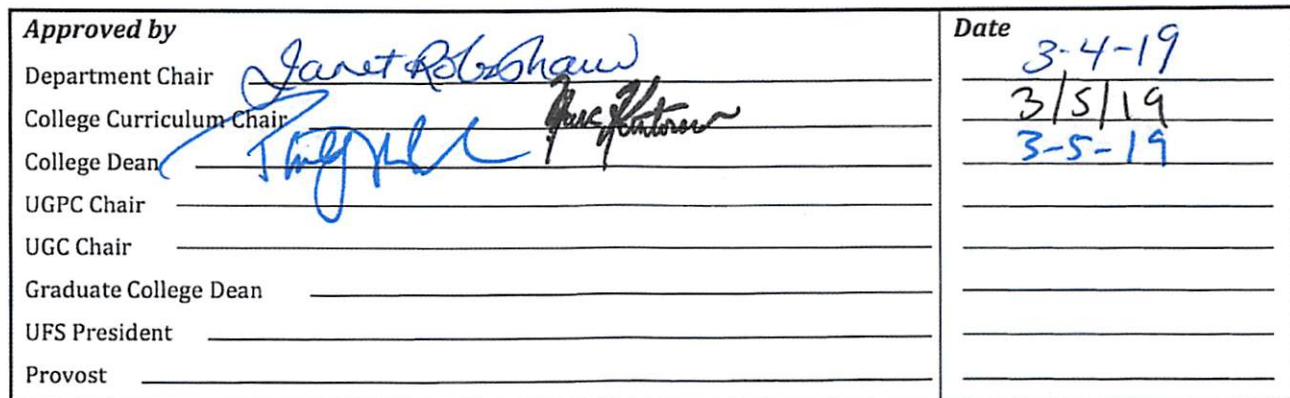 Approved by Date
Department Chair Janet Robshaw 3-4-19
College Curriculum Chair 3/5/19
College Dean 3-5-19
UGPC Chair
UGC Chair
Graduate College Dean
UFS President
Provost